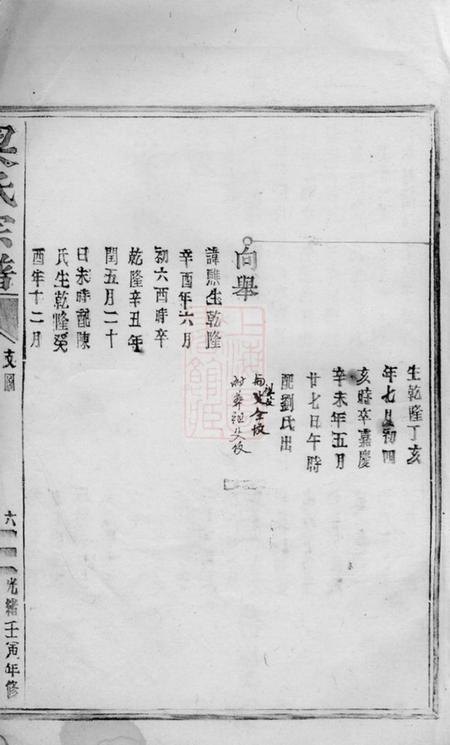 生乾隆丁亥
年七月初四
亥時卒嘉慶
辛未年五月
廿七日午時
配劉氏出
全坟
附葬祖父坟
向舉
諱㷍生乾隆
辛酉年六月
初六酉時卒
乾隆辛丑年
閏五月二十
日未時配陳
氏生乾隆癸
酉年十二月
氏宗譜
支圖
六
光緒壬寅年修